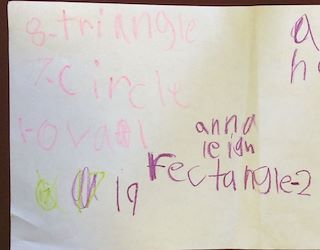 8-triangle
7-circle
1-oval
anna
leigh
rectangle-2
19
a
h